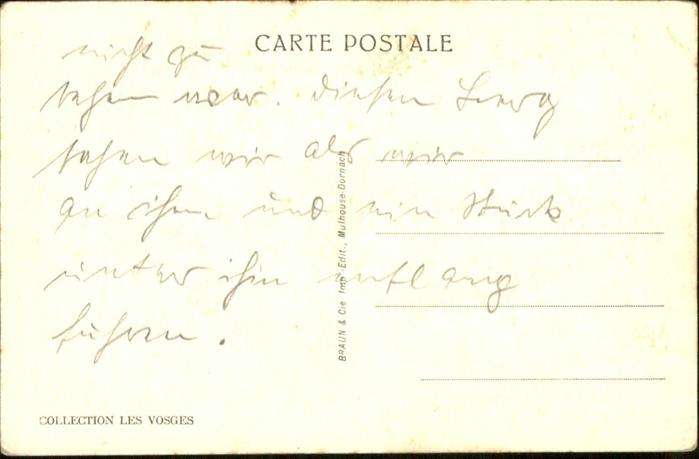 CARTE POSTALE
nicht zu
sehen war. Diesen Berg
sahen wir als wir
an ihm und ein Stück
unter ihm entlang
fuhren.
BRAUN & Cie Imp. Edit., Mulhouse-Dornach
COLLECTION LES VOSGES